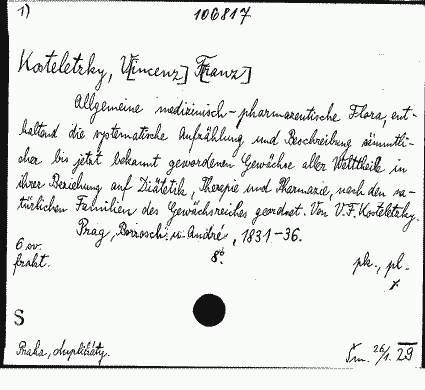 1)
106817
Kosteletzky, V[incenz] F[ranz]
Allgemeine medizinisch-pharmazeutische Flora, ent-
haltend die systematische Aufzählung und Beschreibung sämmtli-
cher bis jetzt bekannt gewordenen Gewächse aller Welttheile in
ihrer Beziehung auf Diätetik, Therapie und Pharmazie, nach den na-
türlichen Familien des Gewächsreiches geordnet. Von V. F. Kosteletzky.
Prag, Borrosch u. André, 1831-36.
6 sv.
8°
frakt.
pk., pl.
S
Praha, duplikáty.
26/1. 29